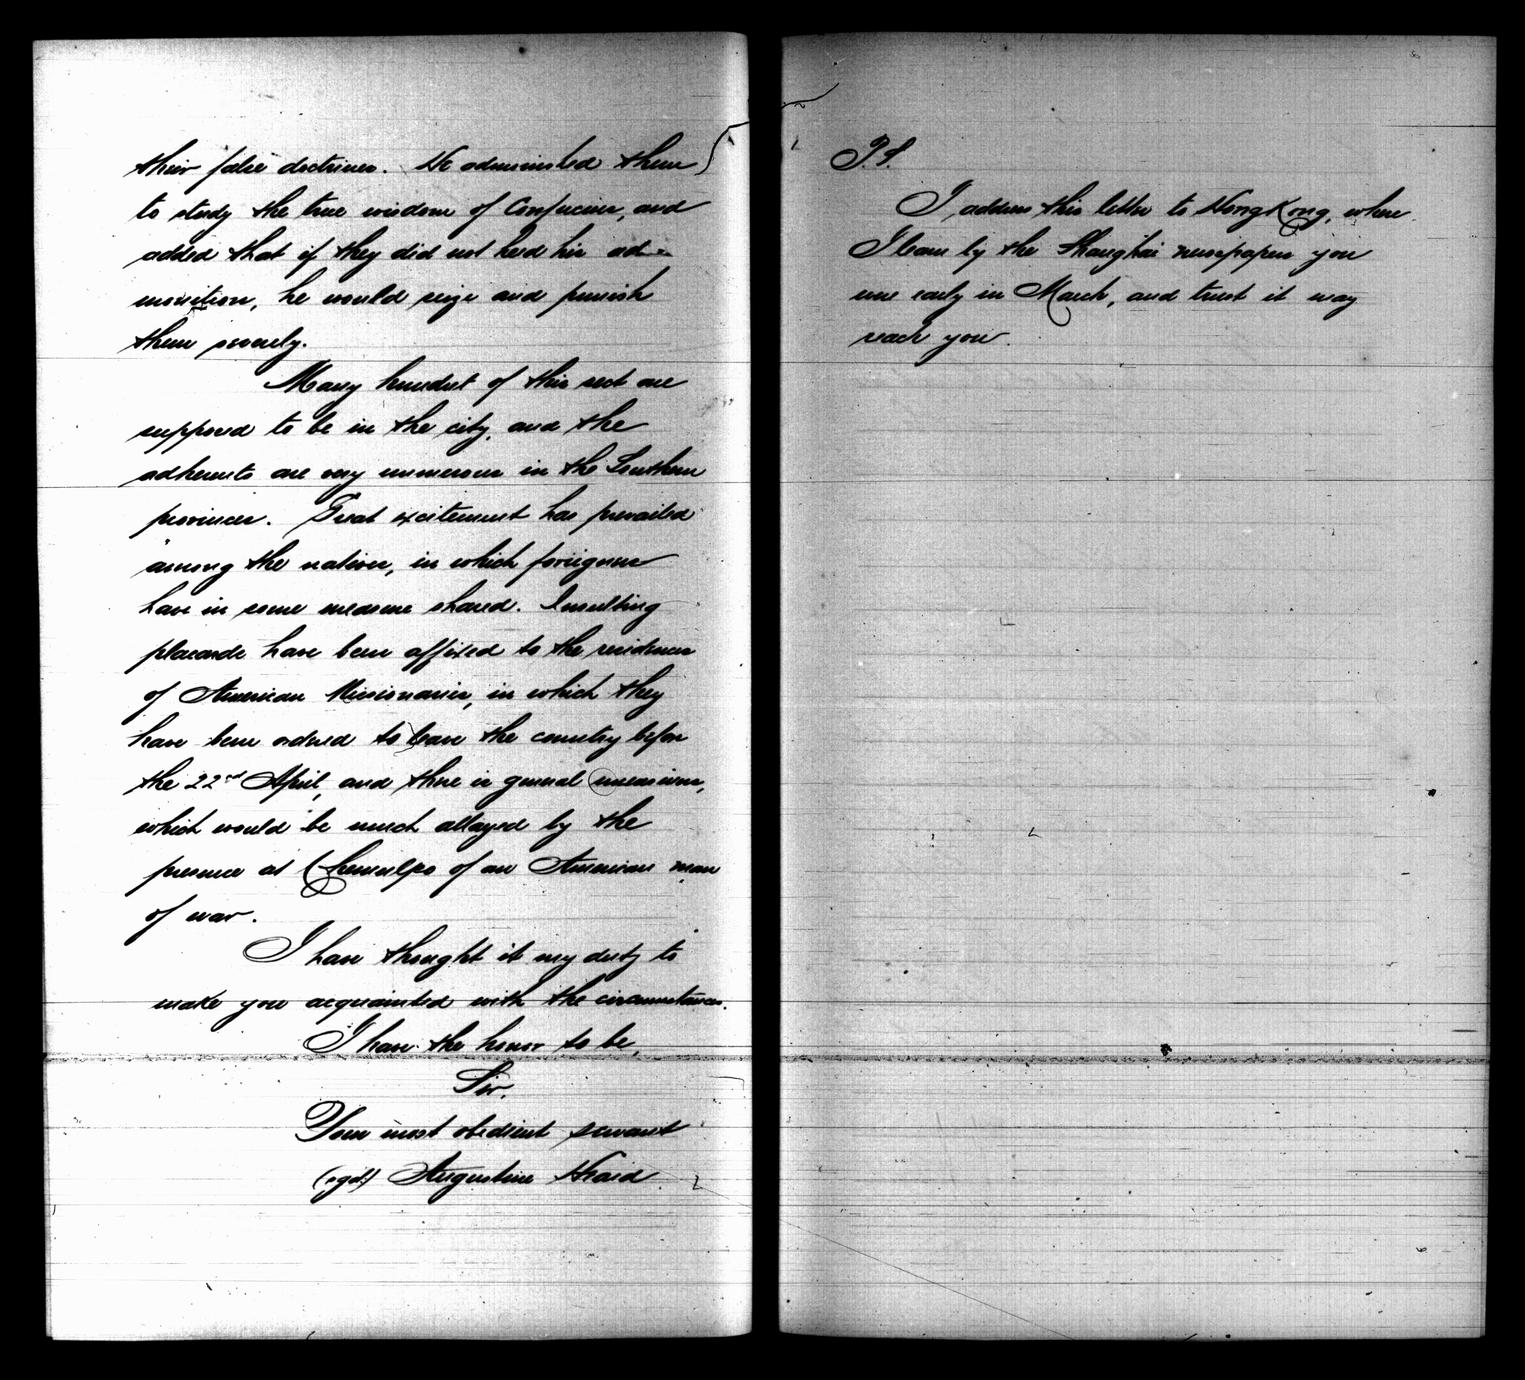 their false doctrines. He admonished them
to study the true wisdom of Confucius, and
added that if they did not heed his ad-
monition, he would seize and punish
them severely.
Many hundred of this sect are
supposed to be in the city, and the
adherents are very numerous in the Southern
provinces. Great excitement has prevailed
among the natives, in which foreigners
have in some measure shared. Insulting
placards have been affixed to the residences
of American Missionaries, in which they
have been ordered to leave the country before
the 22nd April, and there is general uneasiness,
which would be much allayed by the
presence at Chemulpo of an American man
of war.
I have thought it my duty to
make you acquainted with the circumstances.
I have the honor to be,
Sir,
Your most obedient servant
(sgd) Augustine Heard
P.S.
I address this letter to HongKong, where
I learn by the Shanghai newspapers you
were early in March, and trust it may
reach you.